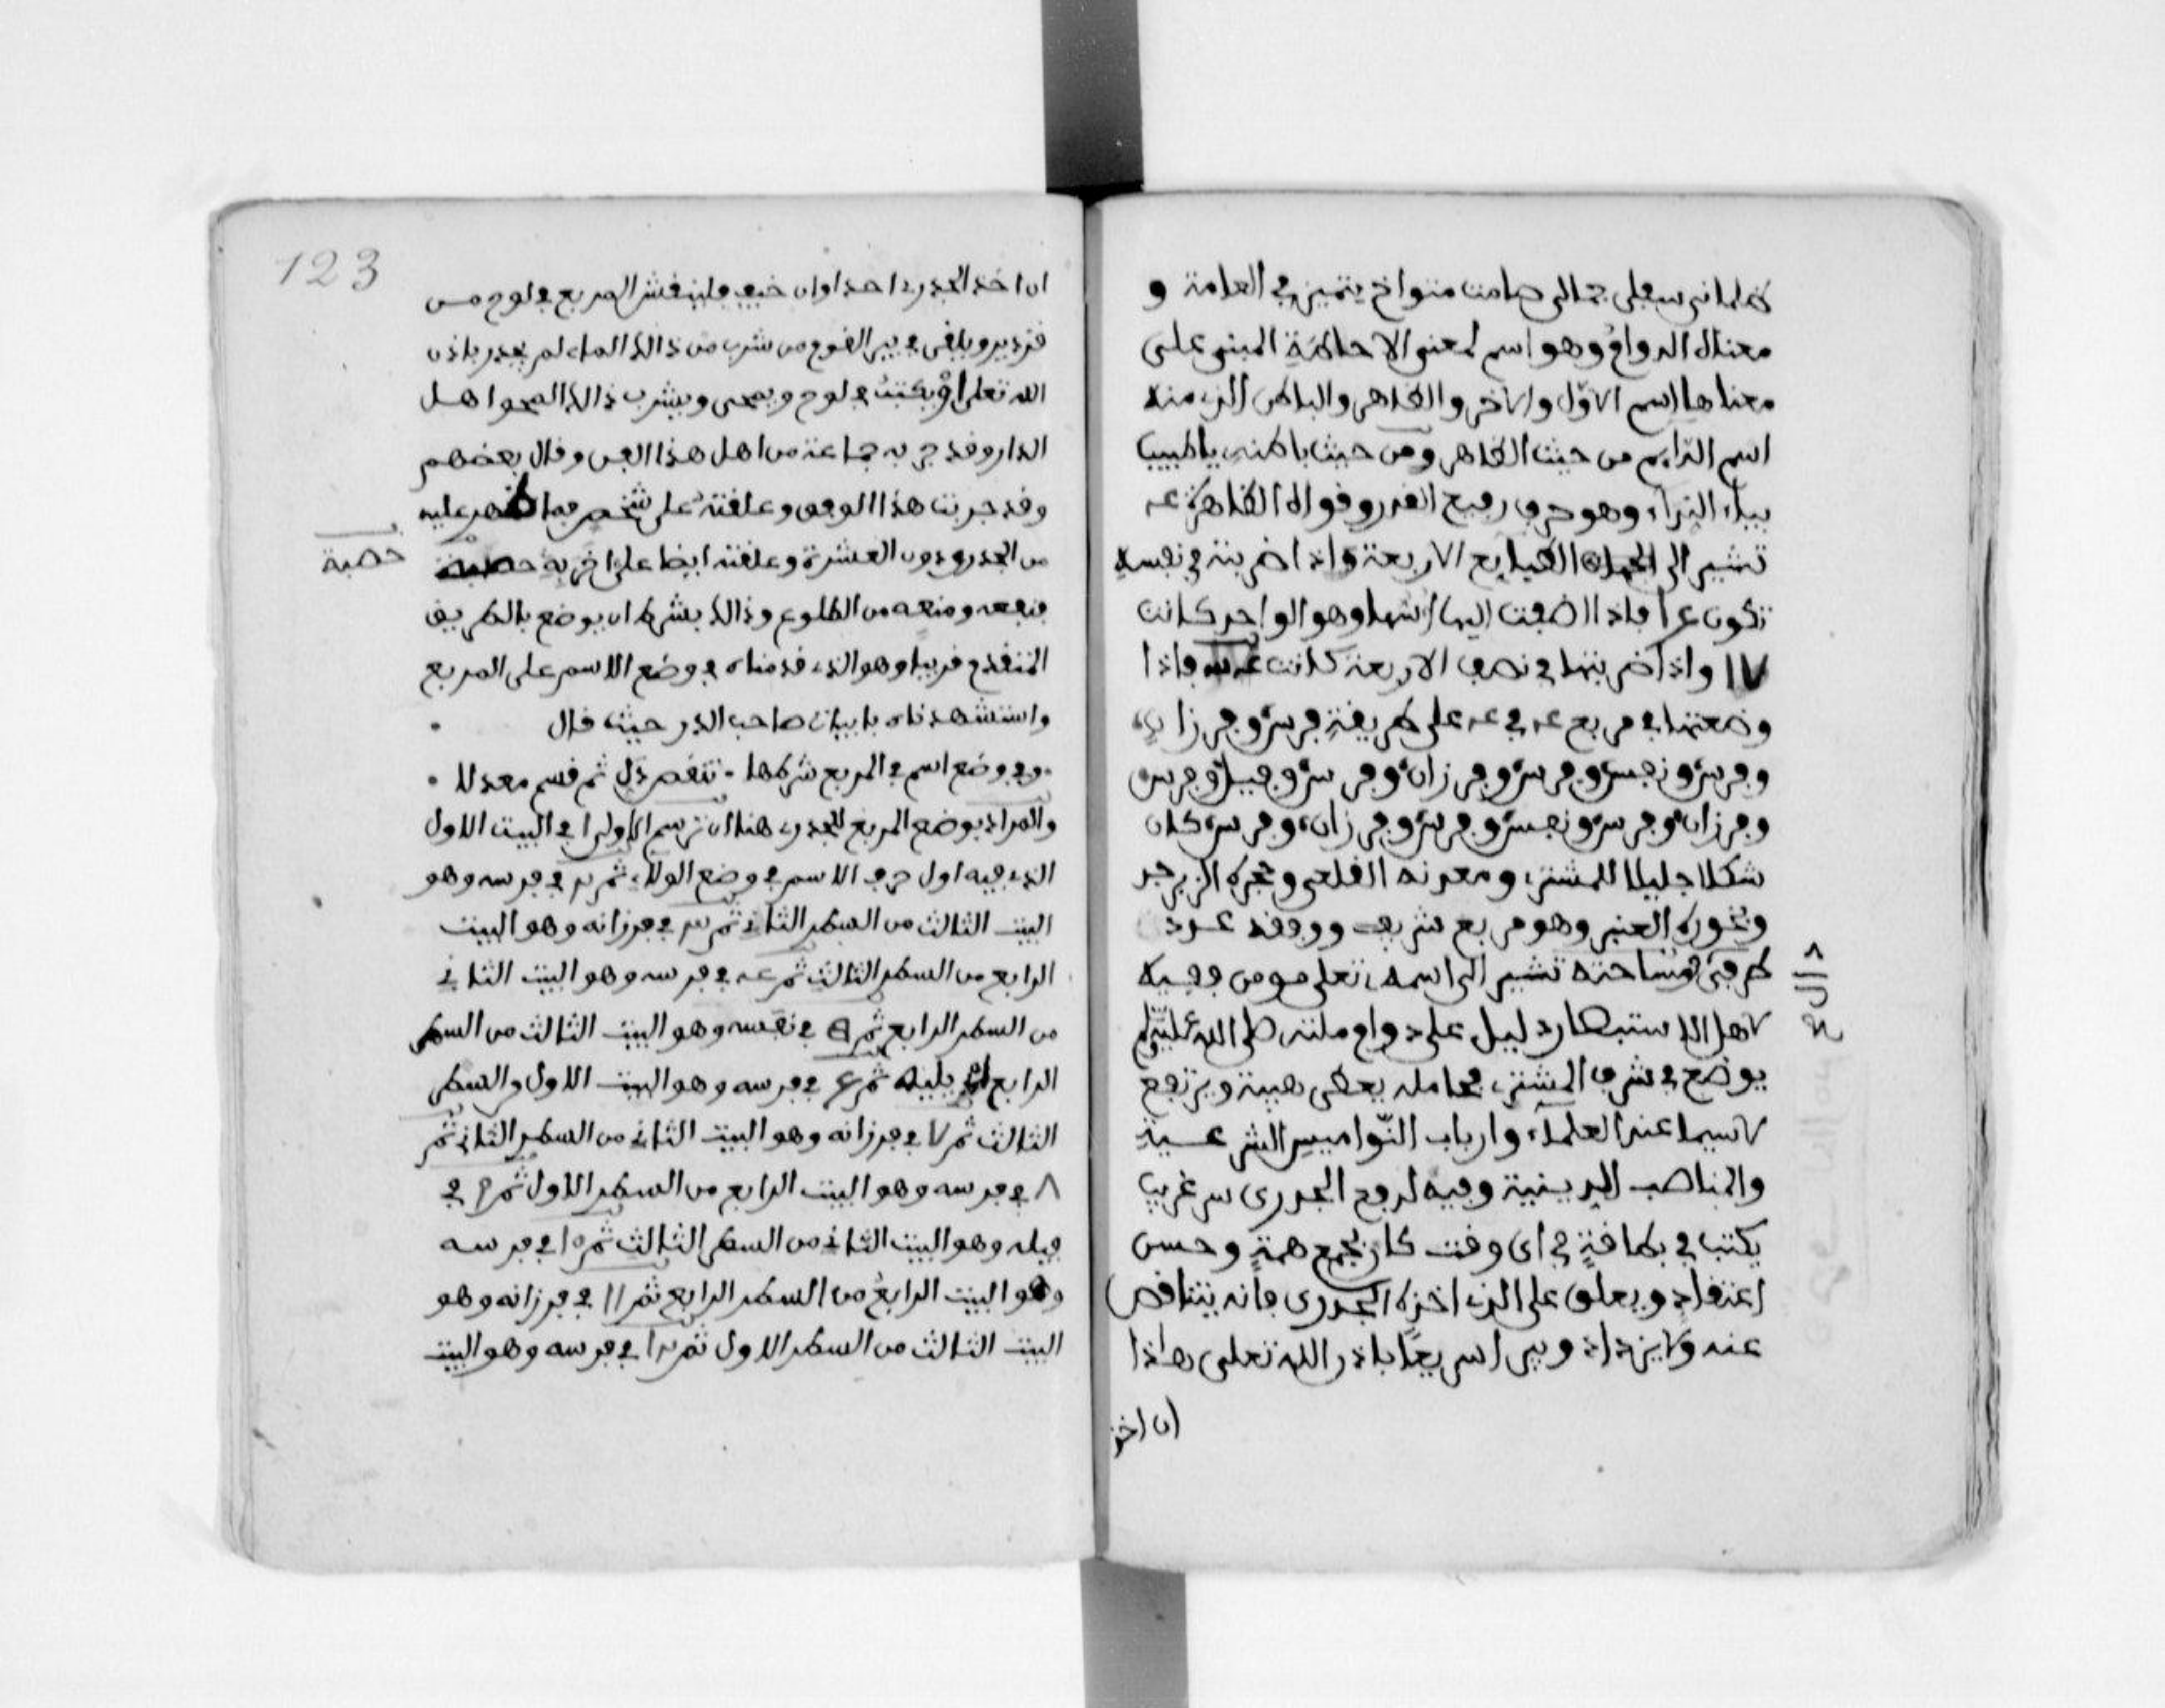 ظلمانى سبعلى جمالى صامت متواخ يتميز في العامة و
معتال الدوام وهو اسم لمعنى الاحاطة المبنى على
معناها اسم الاول والاخر والظاهر والباطن الذى منه
اسم الدايم من حيث الظاهر ومن حيث باطنه يا طبيب
بياء النداء وهو حرف رفيع القدر وقواه الظاهرة عه
تشير الى الطبايع الاربعة واذا ضربته في نفسه
تكون ع ا فاذا اضفت اليها اسها وهو الواحد كانت
١٧ واذا ضربتها في نصف الاربعة كانت فاذا
وضعتها في مربع عه في عه على طريقة فرس وفرزان
وفرس ونفس وفرس وفرزان وفرس وفيل وفرس
وفرزان وفرس ونفس وفرس وفرزان وفرس كان
شكلا جليلا للمشترى ومعدنه القلعى وحجره الزبرجد
وبخوره العنبر وهو مربع شريف ووفقه عدد
طرفى مساحته تشير الى اسمه تعلى مومن وفيه
لاهل الاستبصار دليل على دوام ملته صلى الله عليه وسلم
يوضع في شرف المشترى فحامله يعطى هيبة ويرتفع
لاسيما عند العلماء وارباب النواميس الشرعية
والمناصب الدينية وفيه لدفع الجدرى سر غريب
يكتب في بطاقة في اى وقت كان بجمع همة وحسن
اعتقاد ويعلق على الذى اخذه الجدرى فانه يتناقص
عنه ولا يزداد ويبرا سريعا باذن الله تعلى هاذا
ان اخذ
123
ان اخذ الجدرى احدا وان خيف فلينقش المربع في لوح من
قزدير ويلقى في بير القوم من شرب من ذالك الماء لم يجدر باذن
الله تعلى او يكتب في لوح ويمحى ويشرب ذالك المحو اهل
الدار وقد جربه جماعة من اهل هذا الفن وقال بعضهم
وقد جربت هذا الوفق وعلقته على شخص فما ظهر عليه
من الجدرى دون العشرة وعلقته ايضا على اخر به حصبة
حصبة
فنفعه ومنعه من الطلوع وذالك بشرط ان يوضع بالطريق
المتقدم قريبا وهو الذى قدمناه في وضع الاسم على المربع
واستشهدناه بابيات صاحب الدر حيث قال
وفي وضع اسم في المربع شرطها تنقص ذل ثم قسم معدلا
والمراد بوضع المربع للجدرى هنا ان ترسم الاول ا في البيت الاول
الذى فيه اول حرف الاسم في وضع الولاء ثم ٢ في فرسه وهو
البيت الثالث من السطر الثانى ثم ٣ في فرزانه وهو البيت
الرابع من السطر الثالث ثم عه في فرسه وهو البيت الثانى
من السطر الرابع ثم في نفسه وهو البيت الثالث من السطر
الرابع يليه ثم ٦ في فرسه وهو البيت الاول والسطر
الثالث ثم ٧ في فرزانه وهو البيت الثانى من السطر الثانى ثم
٨ في فرسه وهو البيت الرابع من السطر الاول ثم ٩ في
فيله وهو البيت الثانى من السطر الثالث ثم ١٥ في فرسه
وهو البيت الرابع من السطر الرابع ثم ١١ في فرزانه وهو
البيت الثالث من السطر الاول ثم ١٢ في فرسه وهو البيت